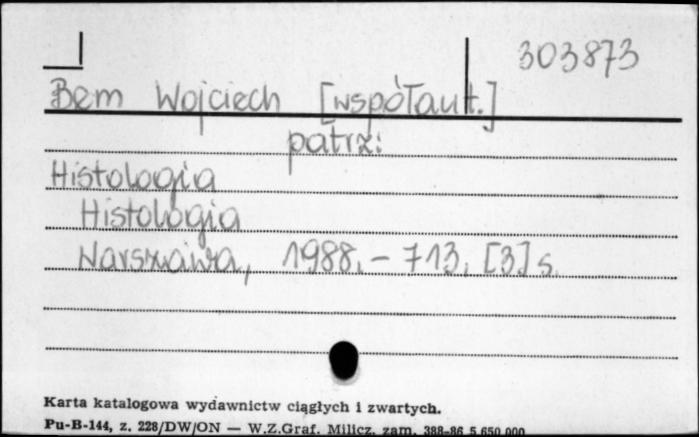 303873
Bem Wojciech [współaut.]
patrz:
Histologia
Histologia
Warszawa, 1988. - 713, [3] s.
Karta katalogowa wydawnictw ciągłych i zwartych.
Pu-B-144, z. 228/DW/ON — W.Z.Graf. Milicz, zam. 388-86 5.650.000